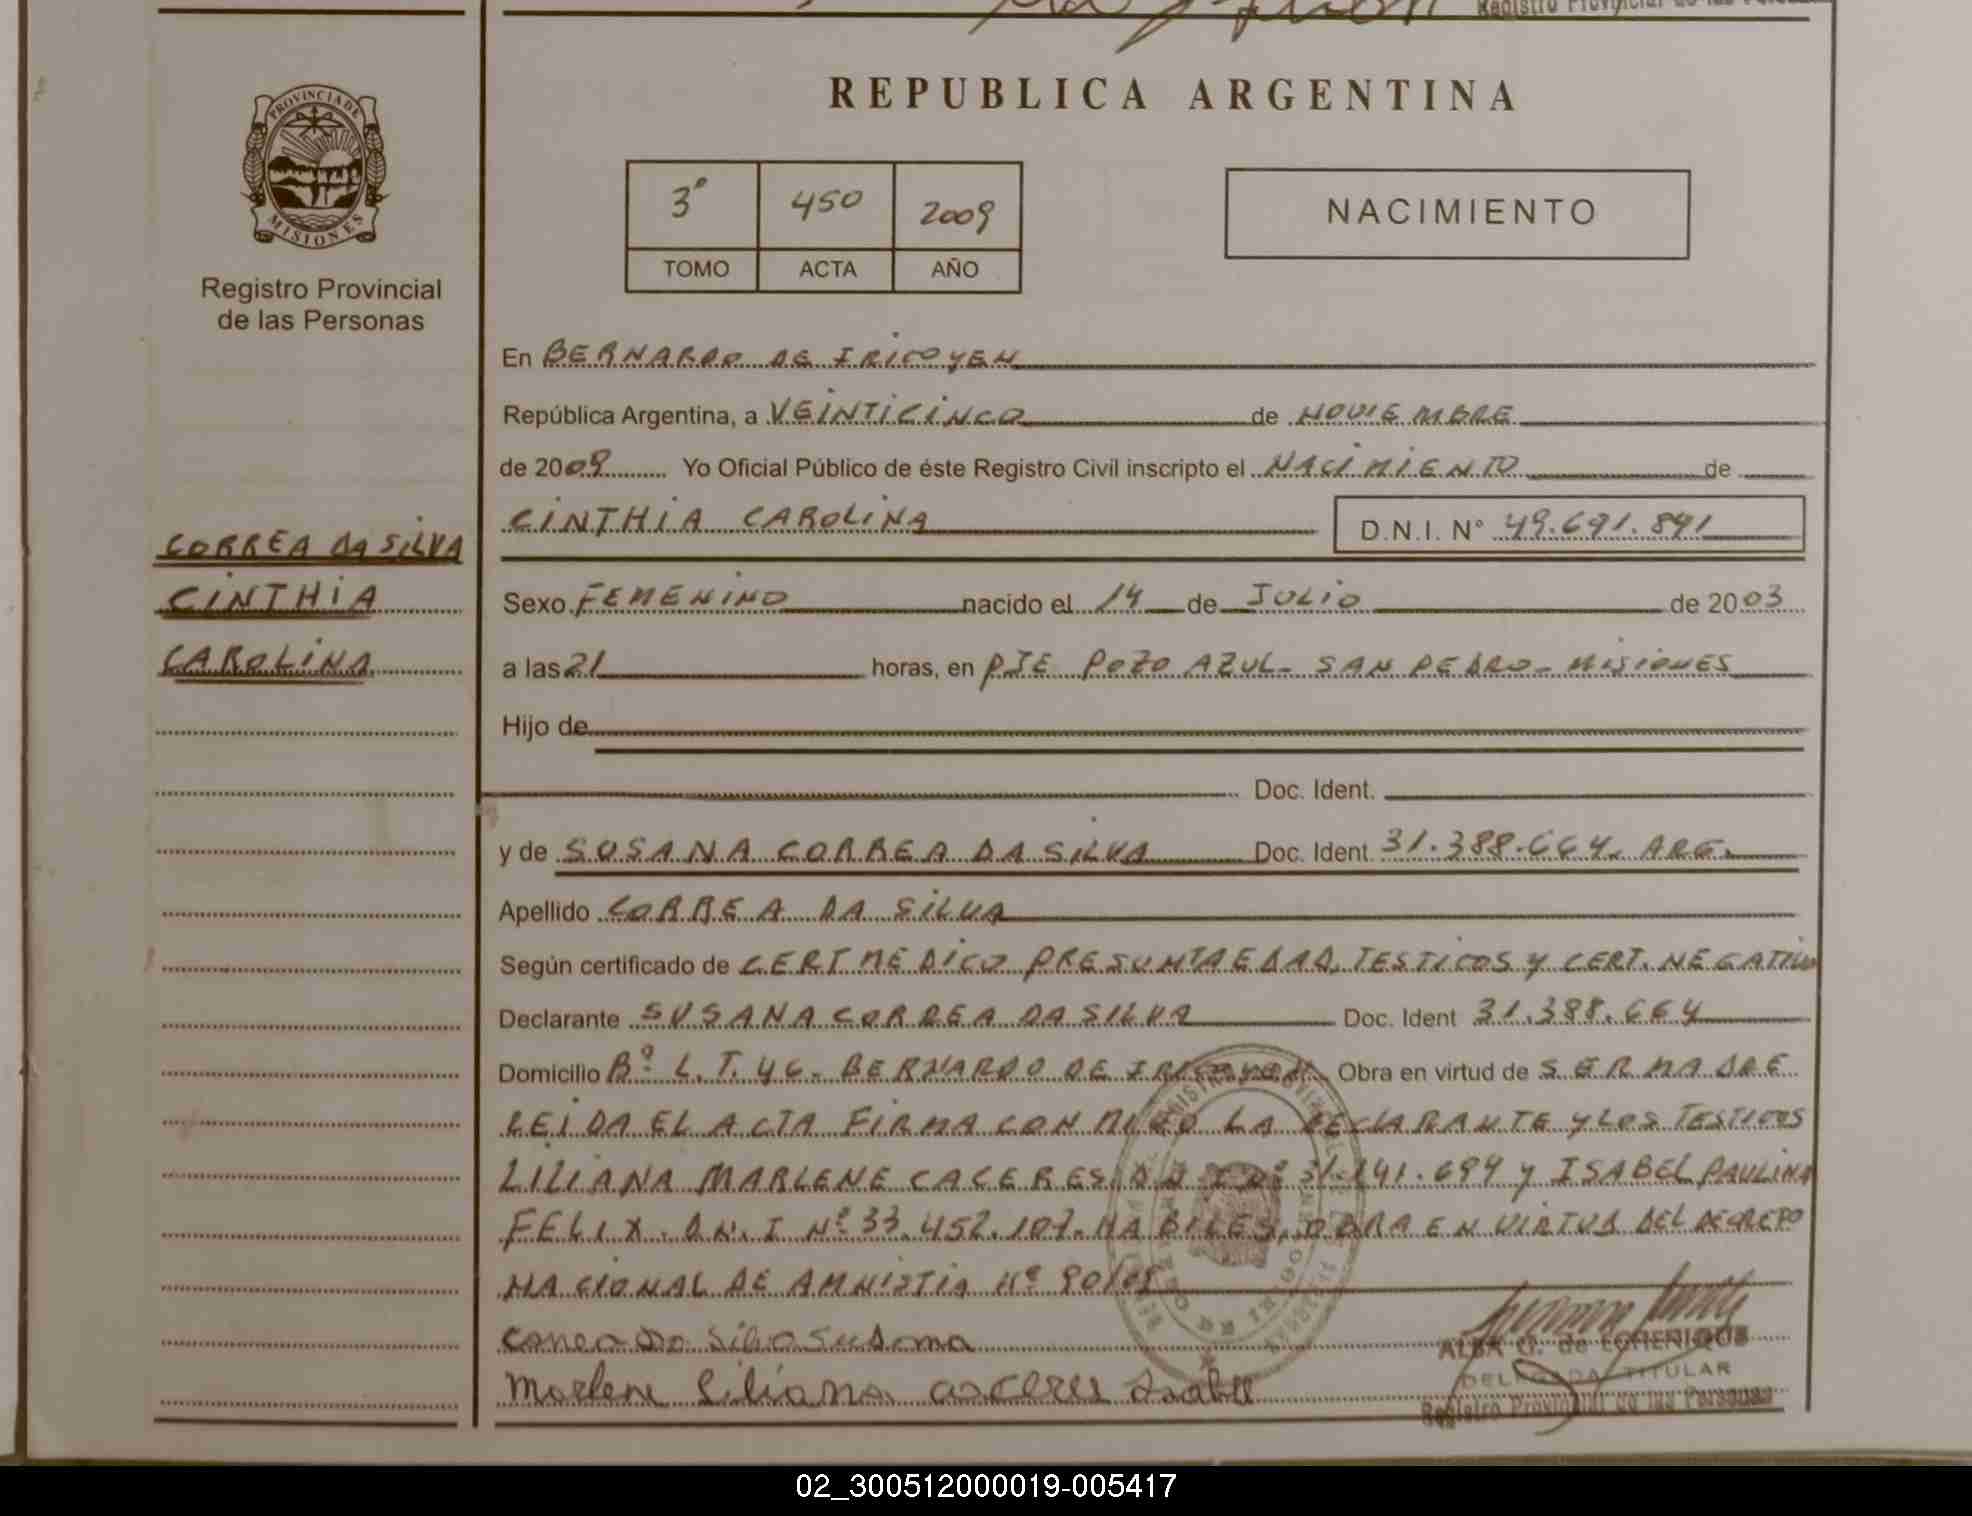 Registro Provincial de las Personas
PROVINCIA DE
MISIONES
Registro Provincial
de las Personas
REPUBLICA ARGENTINA
3º 450 2009
TOMO ACTA AÑO
NACIMIENTO
En BERNARDO DE IRIGOYEN
República Argentina, a VEINTICINCO de NOVIEMBRE
de 2009 Yo Oficial Público de éste Registro Civil inscripto el NACIMIENTO de
CINTHIA CAROLINA D.N.I. N° 49.691.891
CORREA DA SILVA
CINTHIA
CAROLINA
Sexo FEMENINO nacido el 14 de JULIO de 2003
a las 21 horas, en PJE POZO AZUL - SAN PEDRO - MISIONES
Hijo de
Doc. Ident.
y de SUSANA CORREA DA SILVA Doc. Ident 31.388.664. ARG.
Apellido CORREA DA SILVA
Según certificado de CERT MEDICO PRESUNTA EDAD, TESTIGOS Y CERT. NEGATIVO
Declarante SUSANA CORREA DA SILVA Doc. Ident 31.388.664
Domicilio Bº L.T. 46 - BERNARDO DE IRIGOYEN Obra en virtud de SER MADRE
LEIDA EL ACTA FIRMA CON MIGO LA DECLARANTE Y LOS TESTIGOS
LILIANA MARLENE CACERES. D.N.I Nº 31.141.694 y ISABEL PAULINA
FELIX. D.N.I Nº 33.452.107. HABILES, OBRA EN VIRTUD DEL DECRETO
NACIONAL DE AMNISTIA Nº 90/09
Correa Da Silva Susana
Marlene Liliana Caceres Isabel
ALBA G. de ECHENIQUE
DELEGADA TITULAR
Registro Provincial de las Personas
02_300512000019-005417